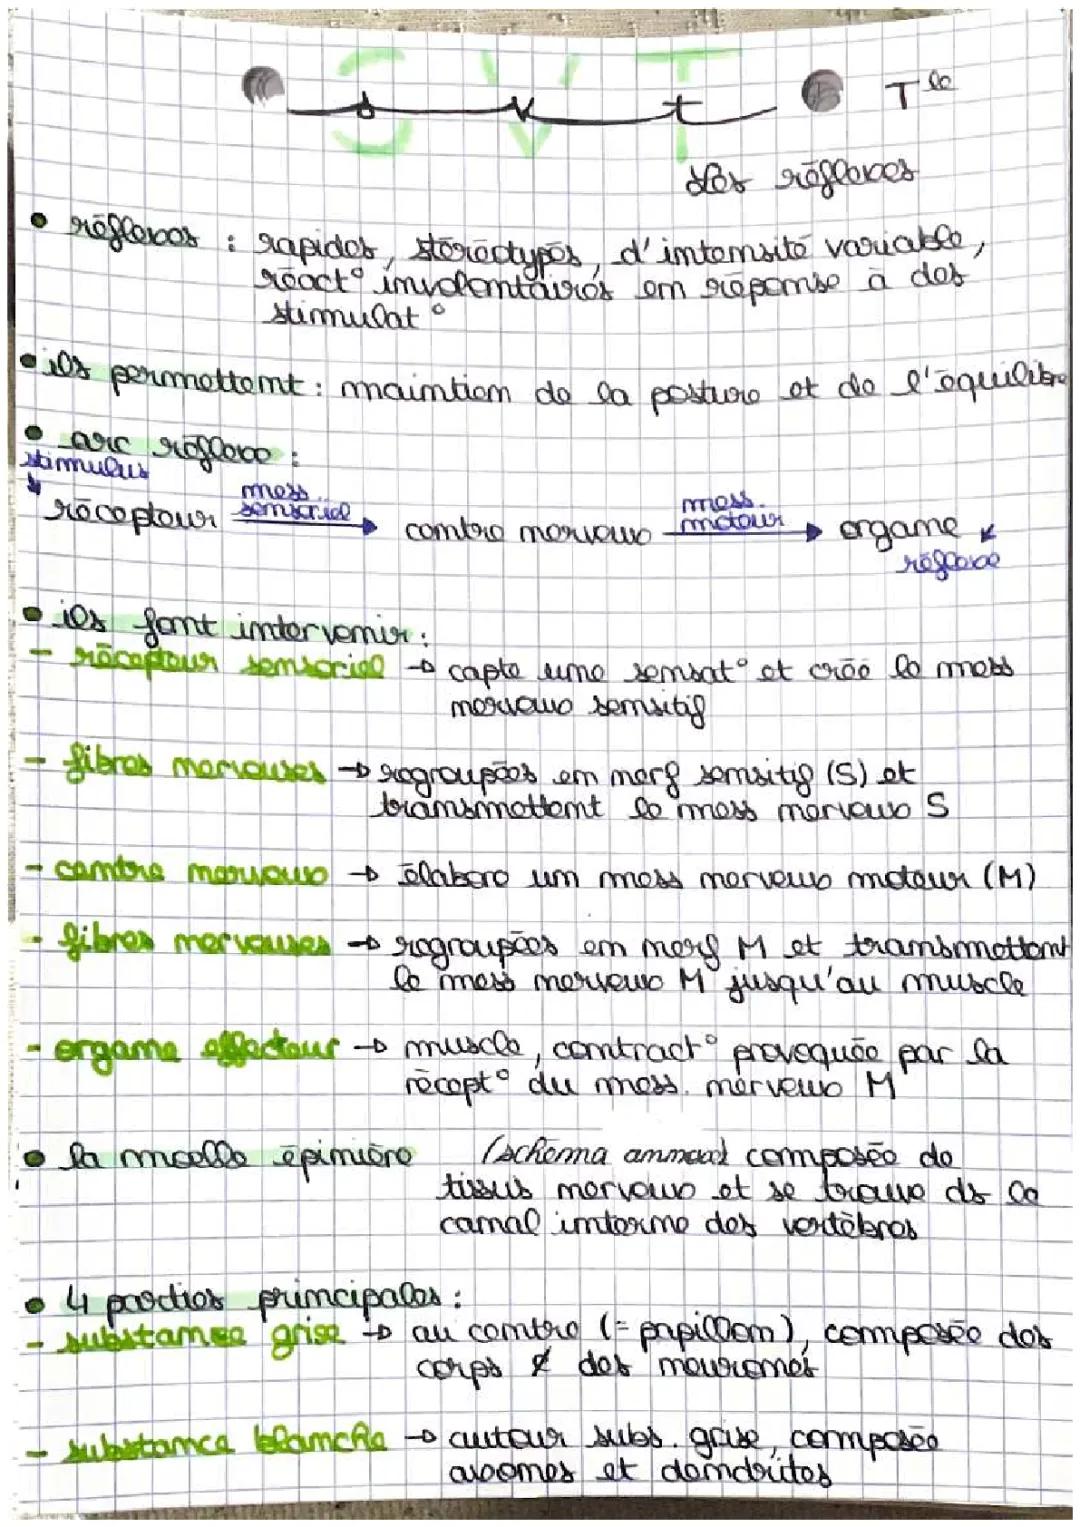 SVT
svt
Tle
Les réflexes
• réflexes : rapides, stéréotypés, d'intensité variable,
réact° involontaires en réponse à des
stimulat°
• ils permettent : maintien de la posture et de l'équilibre
• arc réflexe :
stimulus
récepteur mess. sensoriel → centre nerveux mess. moteur → organe
réflexe
• ils font intervenir :
- récepteur sensoriel → capte une sensat° et créé le mess
nerveux sensitif
- fibres nerveuses → regroupées en nerf sensitif (S) et
transmettent le mess nerveux S
- centre nerveux → élabore un mess nerveux moteur (M)
- fibres nerveuses → regroupées en nerf M et transmettent
le mess nerveux M jusqu'au muscle
- organe effecteur → muscle, contract° provoquée par la
récept° du mess. nerveux M
• la moelle épinière (schéma annexe) composée de
tissus nerveux et se trouve ds le
canal interne des vertèbres
• 4 parties principales :
- substance grise → au centre (= papillon), composée des
corps ¢ des neurones
- substance blanche → autour subs. grise, composée
axones et dendrites